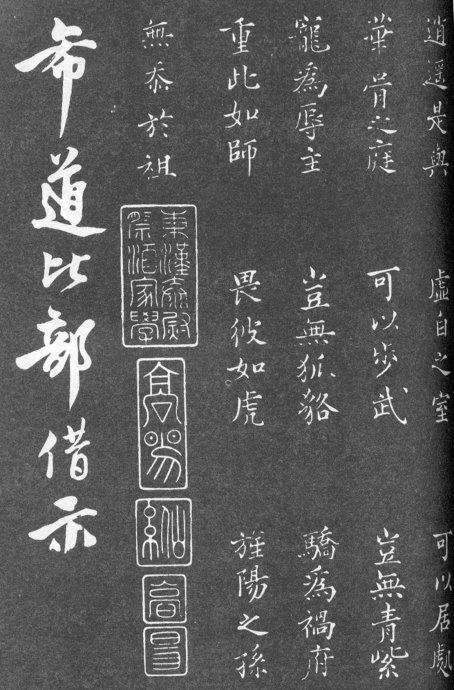 逍遥是與　虛白之室　可以居處
華胥之庭　可以步武　豈無青紫
寵爲辱主　豈無狐貉　驕爲禍府
重此如師　畏彼如虎　旌陽之孫
無忝於祖
東漢太尉
祭酒家學
希道比部借示